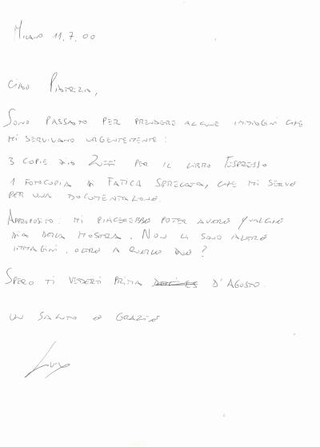 Milano 11.7.00
Ciao Patrizia,
Sono passato per prendere alcune immagini che
mi servivano urgentemente:
3 copie dia per il libro Espresso
1 fotocopia di Fatica Sprecata, che mi serve
per una documentazione.
Approposito: mi piacerebbe poter avere qualche
dia della mostra. Non ci sono altre
immagini, oltre a quelle due?
Spero di vederti prima d'Agosto.
Un saluto e grazie